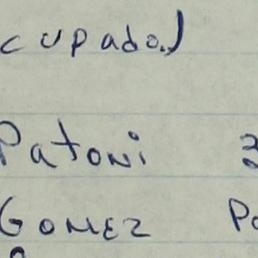 cupado.)
Patoni
Gomez Po